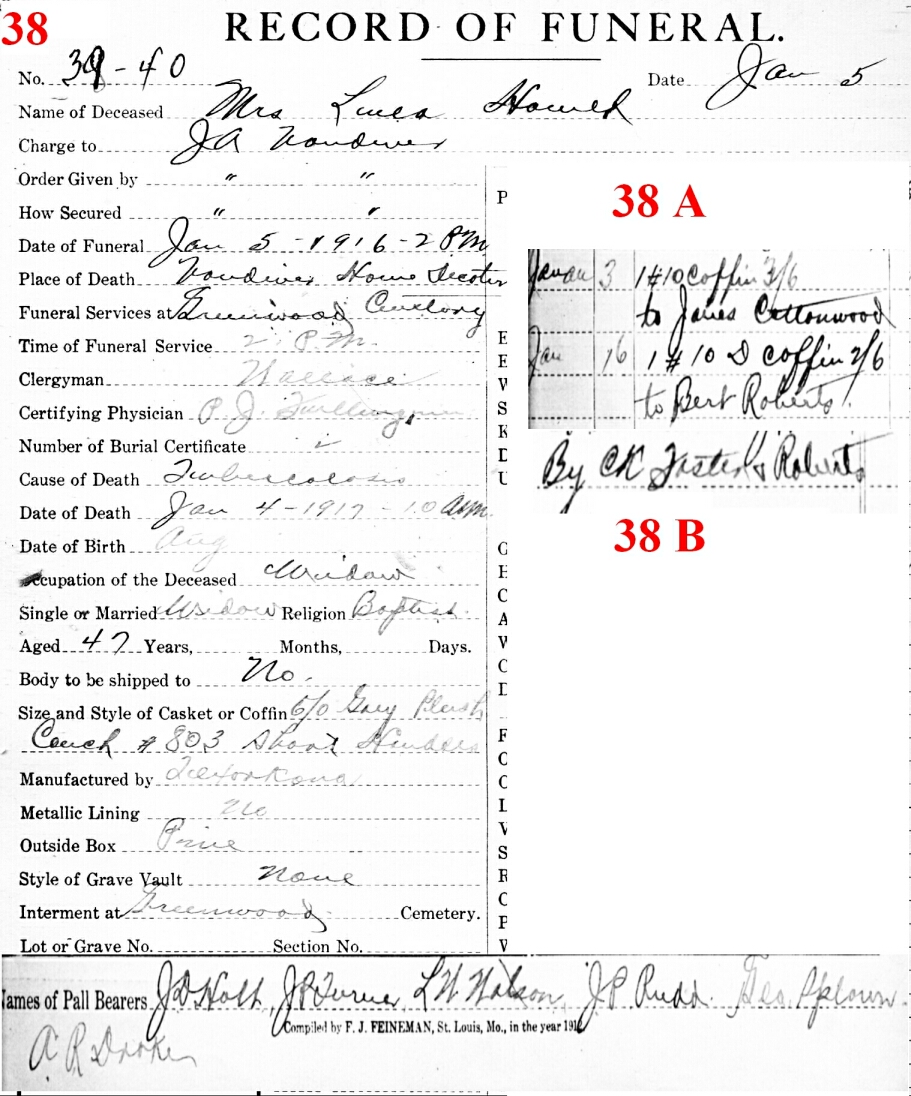 38
RECORD OF FUNERAL.
No. 39-40 Date Jan 5
Name of Deceased Mrs
Charge to J A Vandiver
Order Given by " "
How Secured " "
Date of Funeral Jan 5 - 1916 - 2 PM
Place of Death Vandiver Home
Funeral Services at Greenwood Cemetery
Time of Funeral Service 2 P.M.
Clergyman Wallace
Certifying Physician P. J.
Number of Burial Certificate
Cause of Death Tuberculosis
Date of Death Jan 4 - 1917 - 10 AM
Date of Birth Aug
Occupation of the Deceased Widow
Single or Married Widow Religion Baptist
Aged 47 Years, Months, Days.
Body to be shipped to No.
Size and Style of Casket or Coffin 6/0 Gray Plush
Couch # 803 Handles
Manufactured by Texarkana
Metallic Lining No
Outside Box Pine
Style of Grave Vault None
Interment at Greenwood Cemetery.
Lot or Grave No. Section No.
ames of Pall Bearers J D Holt J P Turner L N Watson J P Rudd Geo
Compiled by F. J. FEINEMAN, St. Louis, Mo., in the year 191
A R
P
E
E
V
S
K
D
U
C
H
C
A
W
C
D
F
C
C
L
V
S
R
C
P
V
38 A
3 1 #10 coffin 3/6
to James Cottonwood
Jan 16 1 # 10 D coffin 2/6
to Bert Roberts
By CK Foster & Roberts
38 B